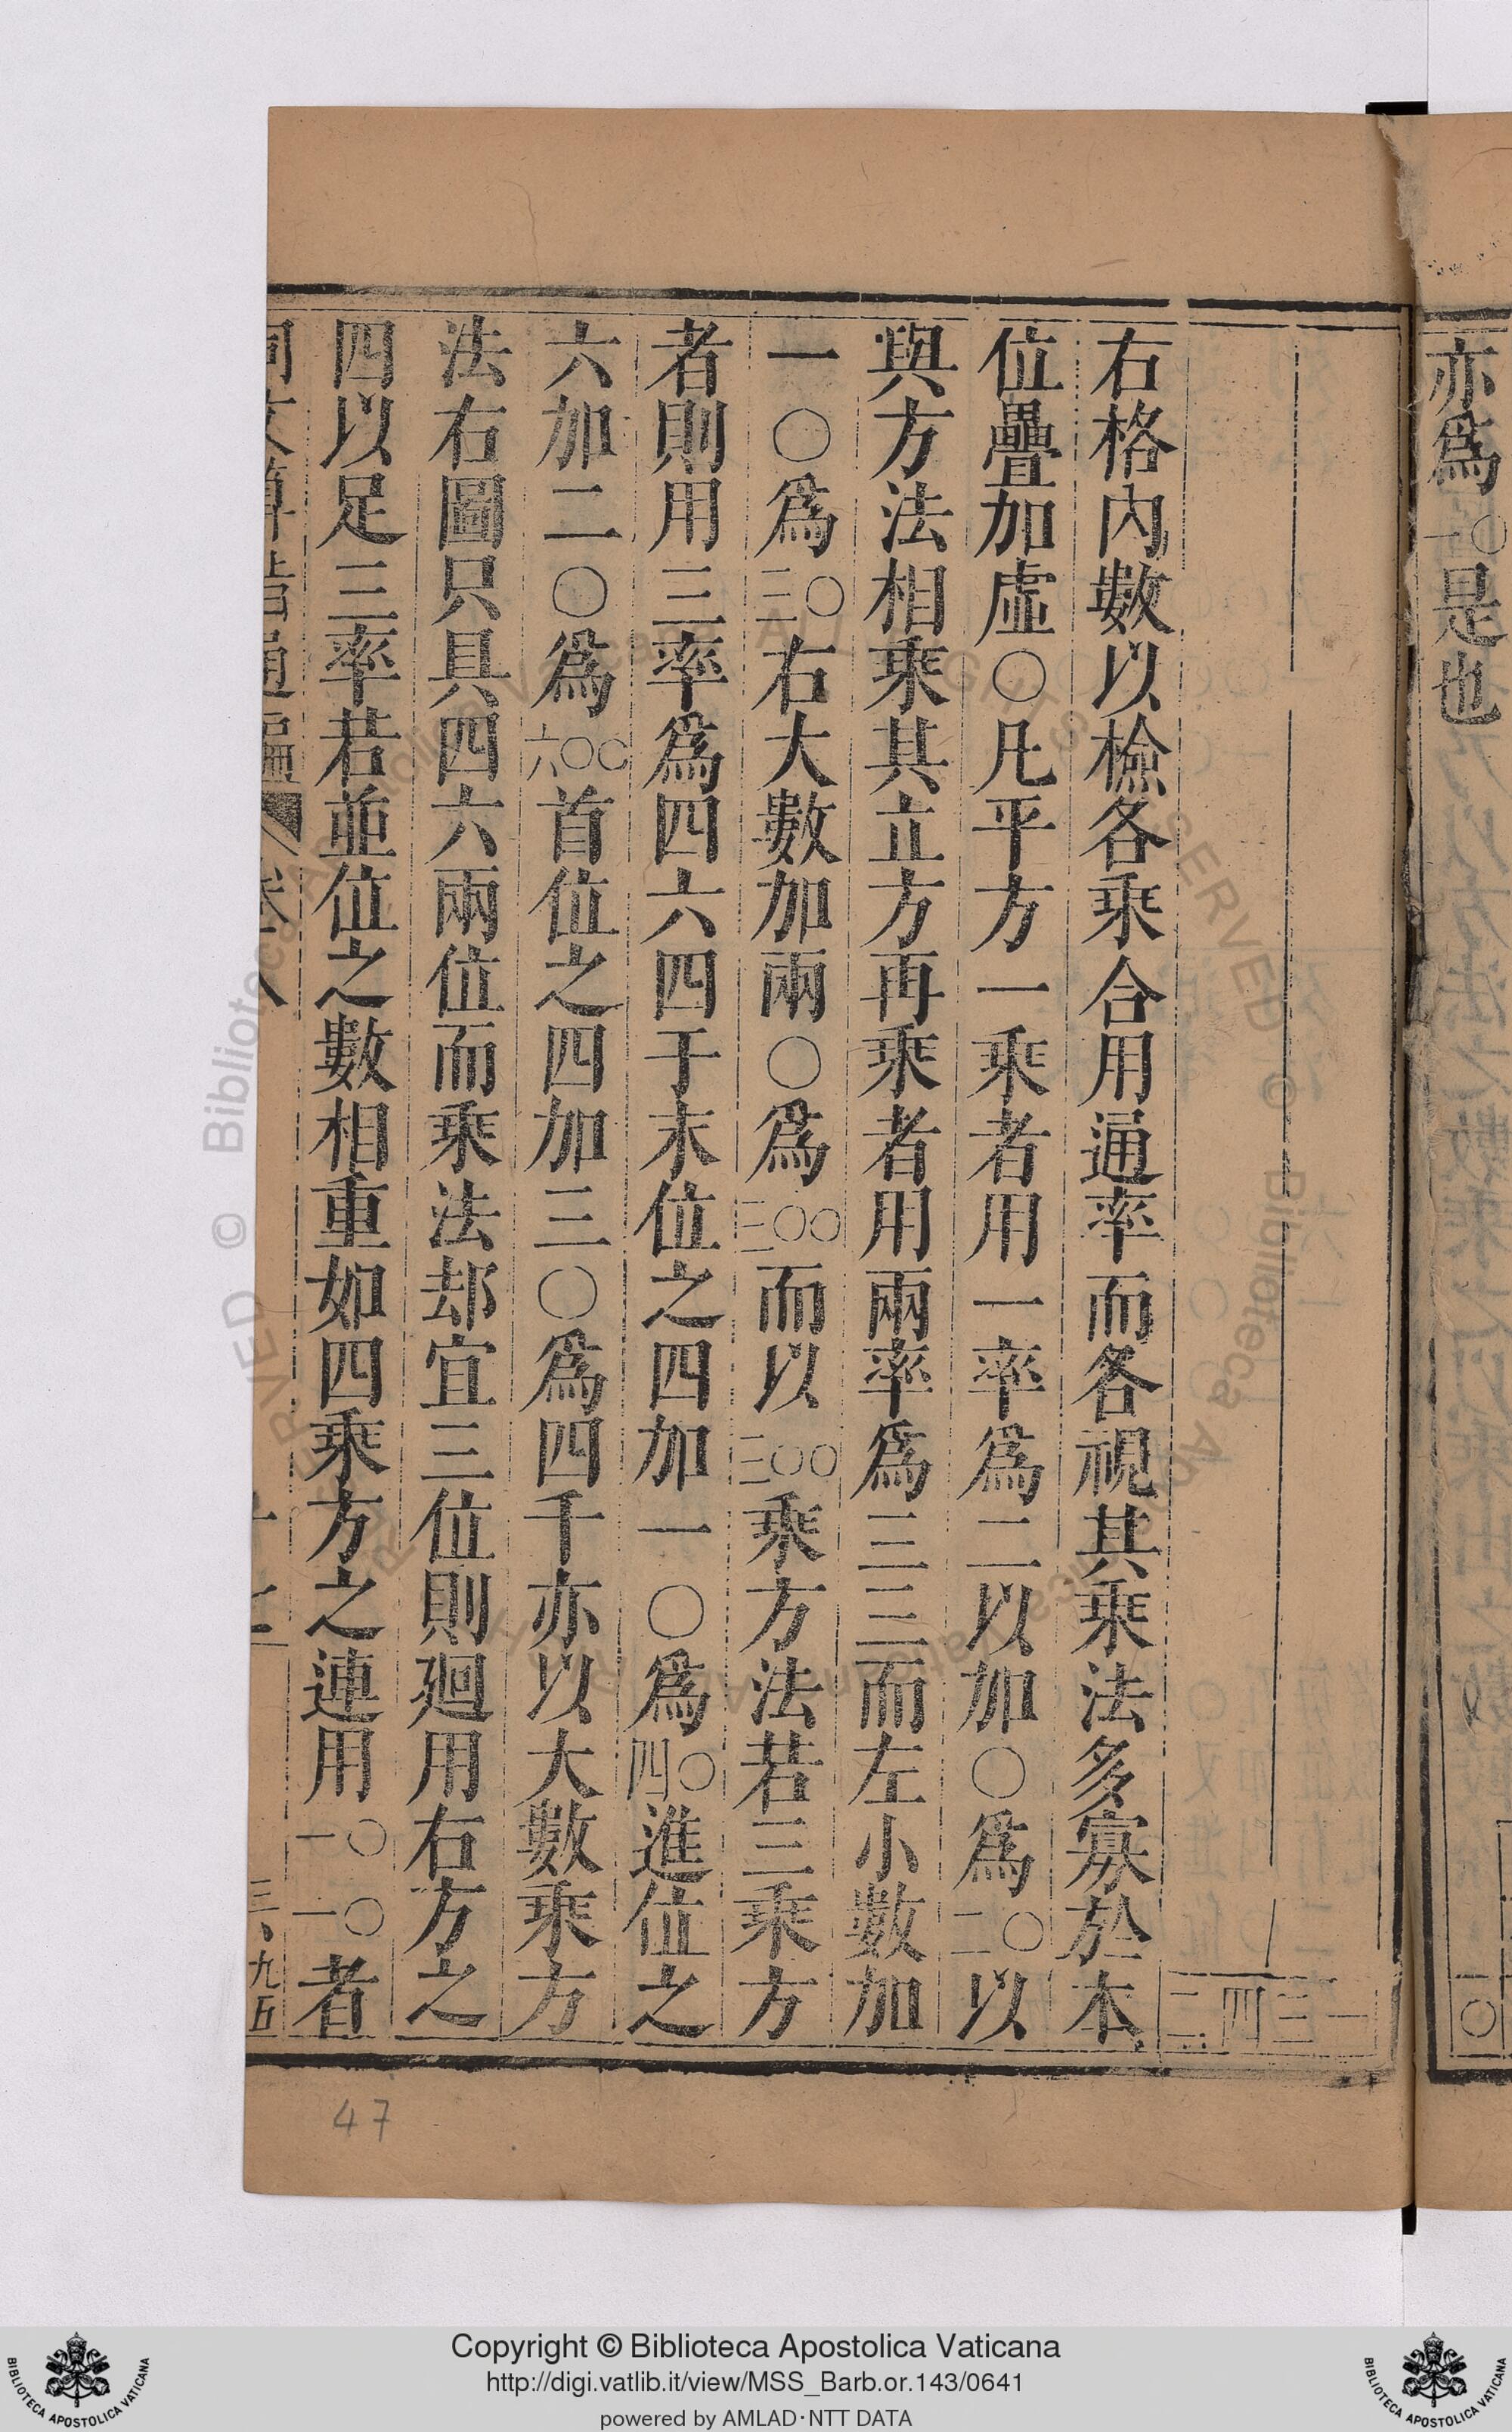 亦爲一〇是也
一三四二
右格內數以檢各乘合用通率而各視其乘法多寡於本
位疊加虛〇凡平方一乘者用一率爲二以加〇爲二〇以
與方法相乘其立方再乘者用兩率爲三三而左小數加
一〇爲三〇右大數加兩〇爲三〇〇而以三〇〇乘方法若三乘方
者則用三率爲四六四于末位之四加一〇爲四〇進位之
六加二〇爲六〇〇首位之四加三〇爲四千亦以大數乘方
法右圖只具四六兩位而乘法却宜三位則廻用右方之
四以足三率若並位之數相重如四乘方之連用一〇一〇者
同文算指通編 卷八 三、九五
47
© Biblioteca Apostolica Vaticana
Copyright © Biblioteca Apostolica Vaticana
http://digi.vatlib.it/view/MSS_Barb.or.143/0641
powered by AMLAD·NTT DATA
BIBLIOTECA APOSTOLICA VATICANA
BIBLIOTECA APOSTOLICA VATICANA